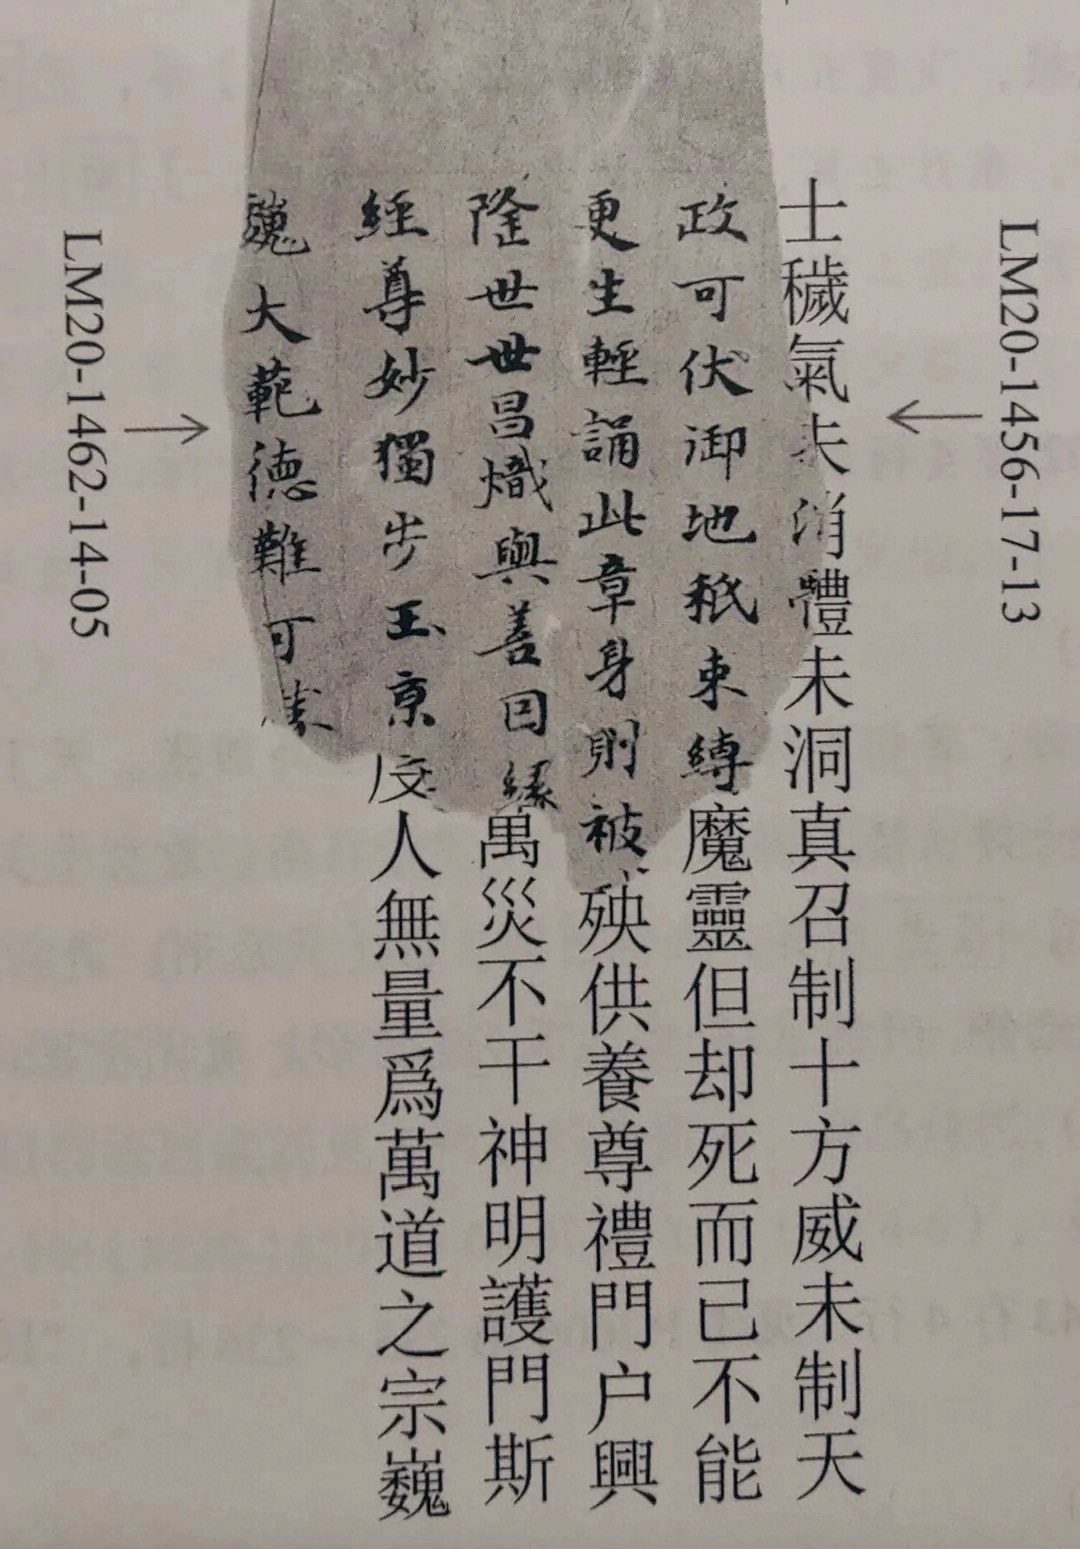 LM20-1456-17-13
士穢氣未消體未洞真召制十方威未制天
政可伏御地秖束縛魔靈但却死而已不能
更生輕誦此章身則被殃供養尊禮門户興
隆世世昌熾與善因緣萬災不干神明護門斯
經尊妙獨步玉京度人無量爲萬道之宗巍
巍大範德難可勝
LM20-1462-14-05